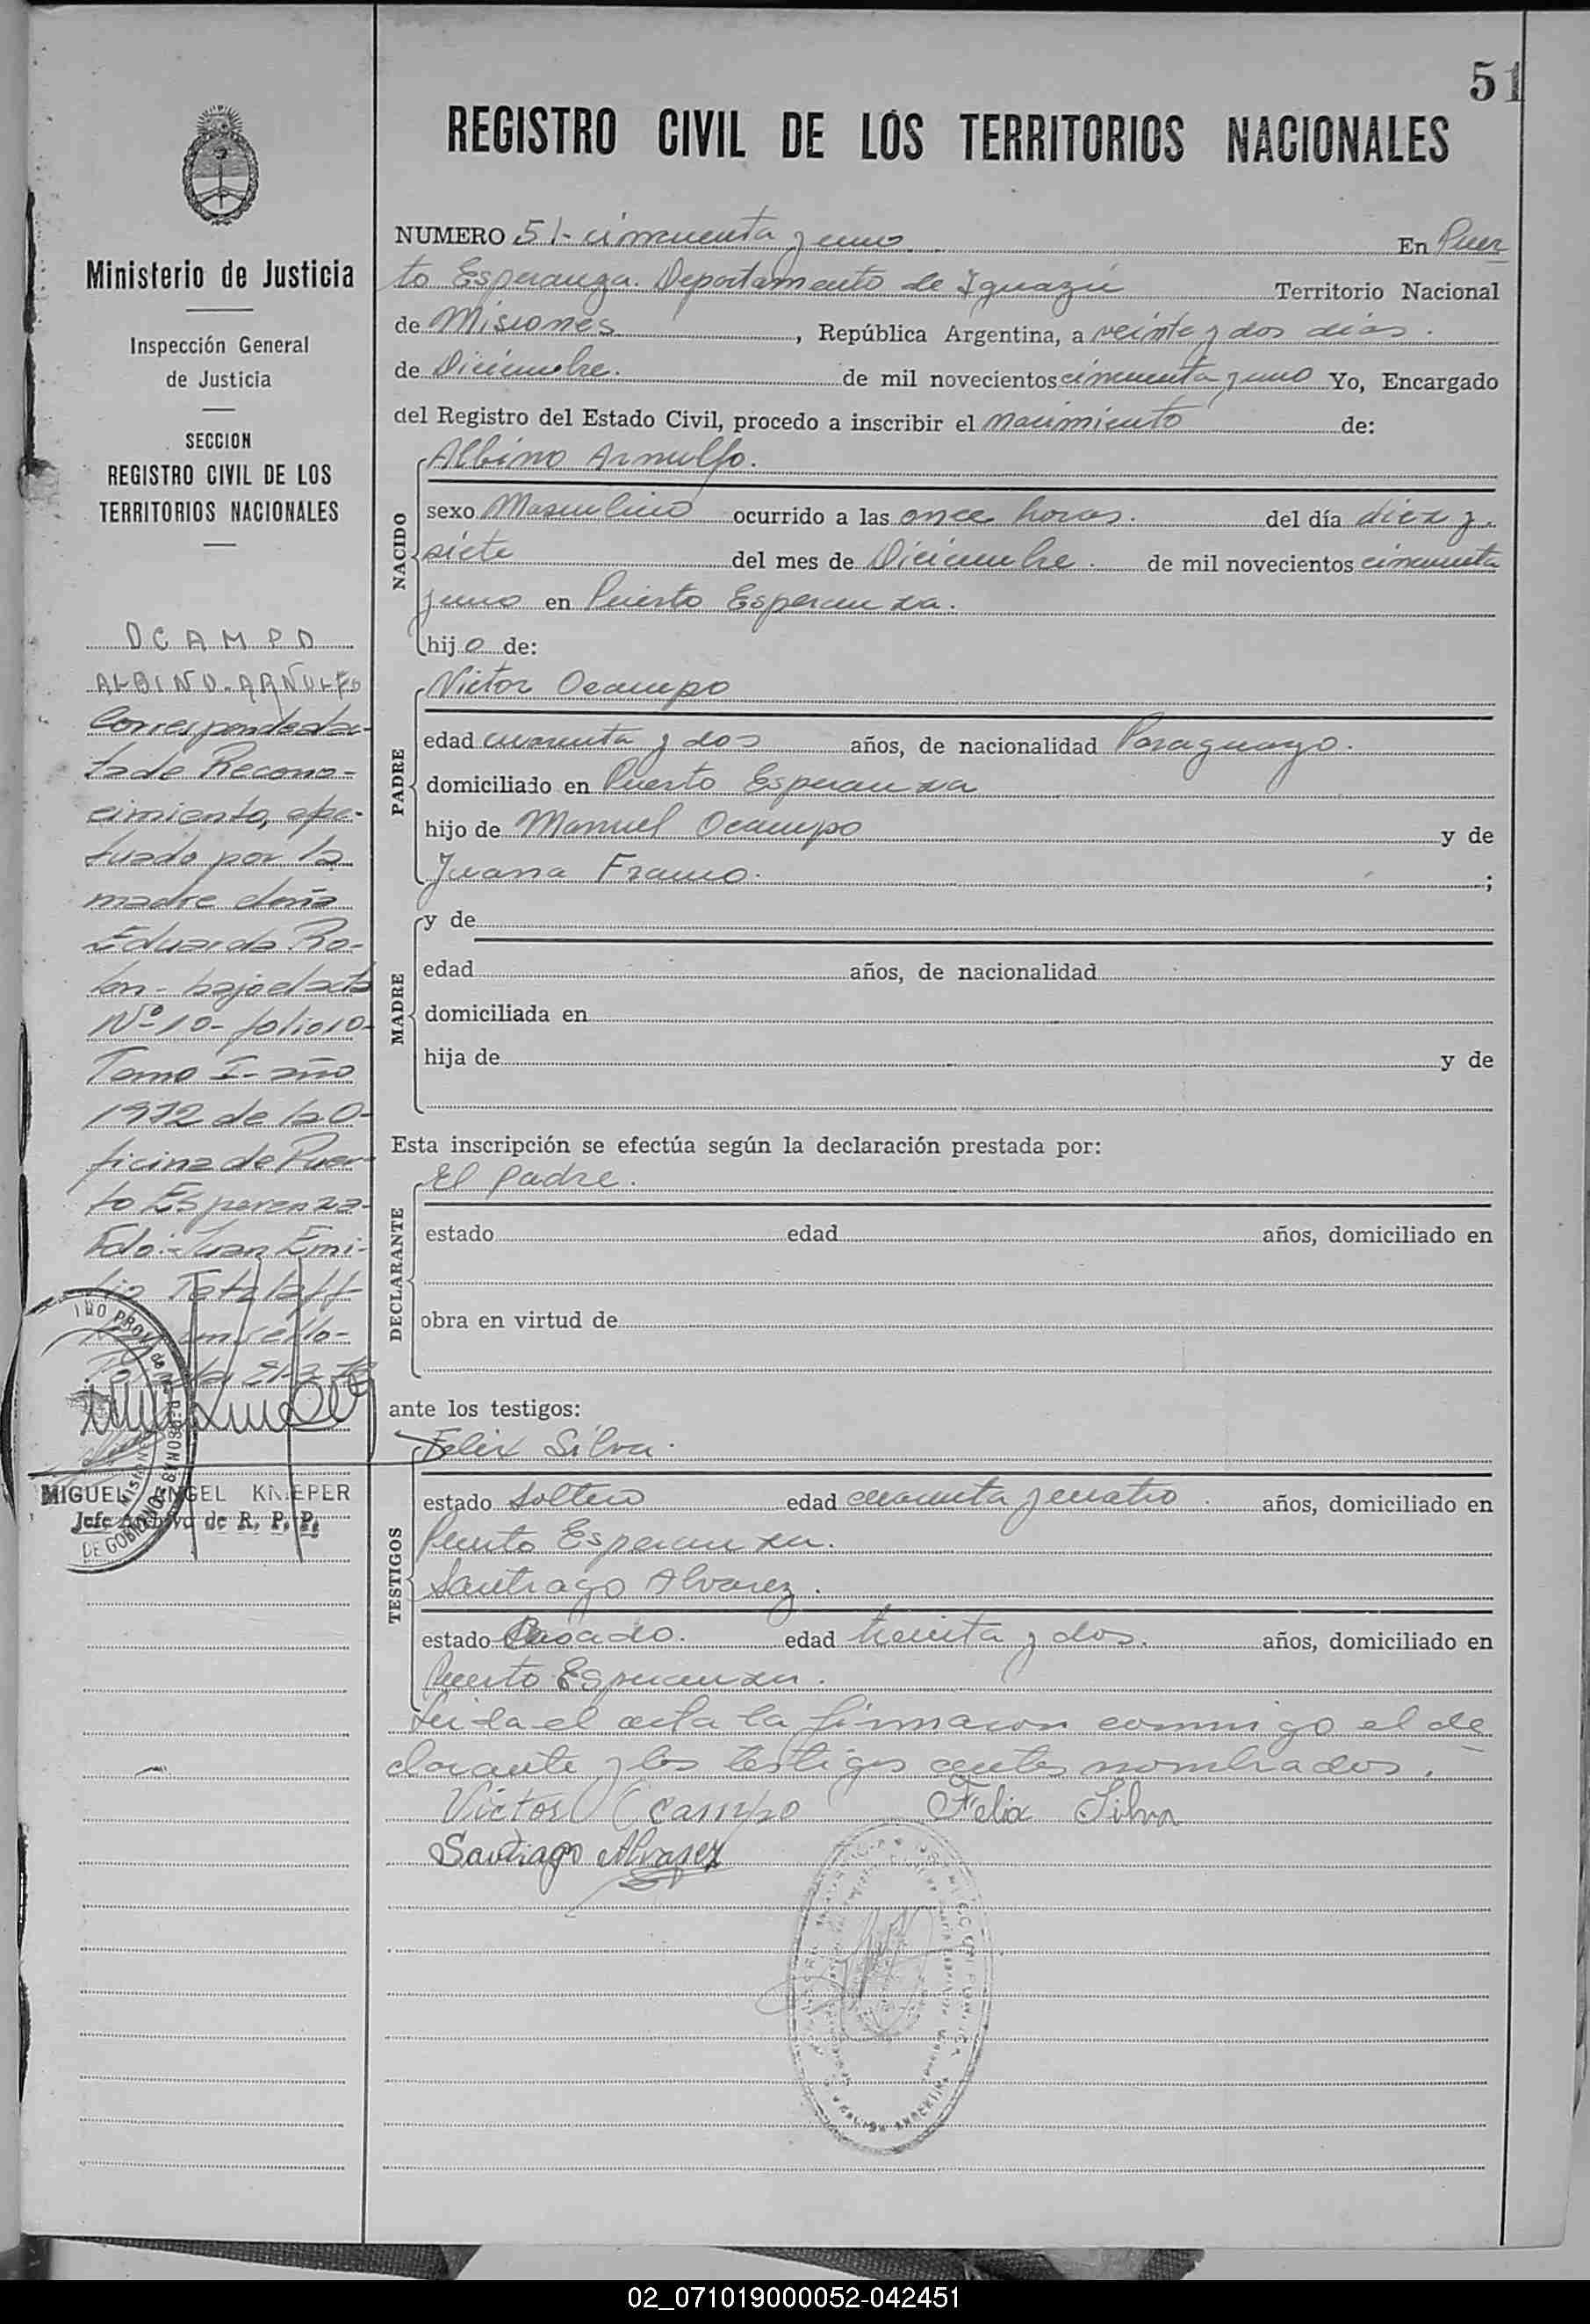 51
REGISTRO CIVIL DE LOS TERRITORIOS NACIONALES
Ministerio de Justicia
Inspección General
de Justicia
SECCION
REGISTRO CIVIL DE LOS
TERRITORIOS NACIONALES
OCAMPO
ALBINO-ARNULFO
Corresponde ac-
ta de Recono-
cimiento, efec-
tuado por la
madre doña
Eduarda Ro-
lon- bajo el acta
Nº 10- folio 10-
Tomo I- año
1972 de la O-
ficina de Puer-
to Esperanza-
Fdo:- Juan Emi-
lio
MIGUEL ANGEL KNEPER
Jefe Archivo de R. P. P.
NUMERO 51- cincuenta y uno En Puer
to Esperanza. Departamento de Iguazú Territorio Nacional
de Misiones, República Argentina, a veinte y dos dias.
de Diciembre. de mil novecientos cincuenta y uno Yo, Encargado
del Registro del Estado Civil, procedo a inscribir el nacimiento de:
NACIDO
Albino Arnulfo.
sexo Masculino ocurrido a las once horas. del día diez y.
siete del mes de Diciembre. de mil novecientos cincuenta
y uno en Puerto Esperanza.
hijo de:
PADRE
Victor Ocampo
edad cuarenta y dos años, de nacionalidad Paraguayo.
domiciliado en Puerto Esperanza
hijo de Manuel Ocampo y de
Juana Franco. ;
MADRE
y de
edad años, de nacionalidad
domiciliada en
hija de y de
Esta inscripción se efectúa según la declaración prestada por:
DECLARANTE
El padre.
estado edad años, domiciliado en
obra en virtud de
ante los testigos:
TESTIGOS
Felix Silva.
estado soltero edad cuarenta y cuatro. años, domiciliado en
Puerto Esperanza.
Santiago Alvarez.
estado Casado. edad treinta y dos. años, domiciliado en
Puerto Esperanza.
Leida el acta la firmaron conmigo el de
clarante y los testigos antes nombrados.
Victor Ocampo Felix Silva
Santiago Alvarez
02_071019000052-042451